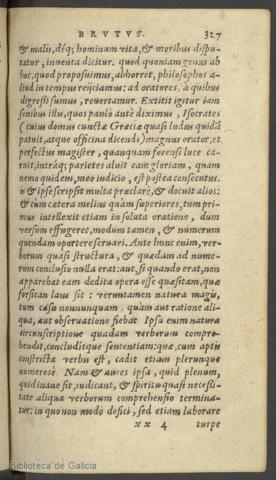 BRVTVS. 327
& malis, déq; hominum vita, & moribus dispu-
tatur, inuenta dicitur. quod quoniam genus ab
hoc, quod proposuimus, abhorret, philosophos a-
liud in tempus reijciamus: ad oratores, à quibus
digressi sumus, reuertamur. Extitit igitur iam
senibus illis, quos paulò antè diximus, Isocrates
(cuius domus cunctæ Græciæ quasi ludus quidā
patuit, atque officina dicendi) magnus orator, et
perfectus magister, quanquam forensi luce ca-
ruit, intráq; parietes aluit eam gloriam, quam
nemo quidem, meo iudicio, est postea consecutus.
is & ipse scripsit multa præclarè, & docuit alios:
& cùm cætera melius quàm superiores, tum pri-
mus intellexit etiam in soluta oratione, dum
versum effugeret, modum tamen, & numerum
quendam oportere seruari. Ante hunc enim, ver-
borum quasi structura, & quædam ad nume-
rum conclusio nulla erat: aut, si quando erat, non
apparebat eam dedita opera esse quæsitam, quæ
forsitan laus sit: veruntamen natura magis,
tum casu nonnunquam, quàm aut ratione ali-
qua, aut obseruatione fiebat. Ipsa enim natura
circunscriptione quadam verborum compre-
hendit, concluditque sententiam: quæ, cum aptis
constricta verbis est, cadit etiam plerunque
numerosè. Nam & aures ipsæ, quid plenum,
quid inane sit, iudicant, & spiritu quasi necessi-
tate aliqua verborum comprehensio termina-
tur: in quo non modò defici, sed etiam laborare
xx 4 turpe
Biblioteca de Galicia